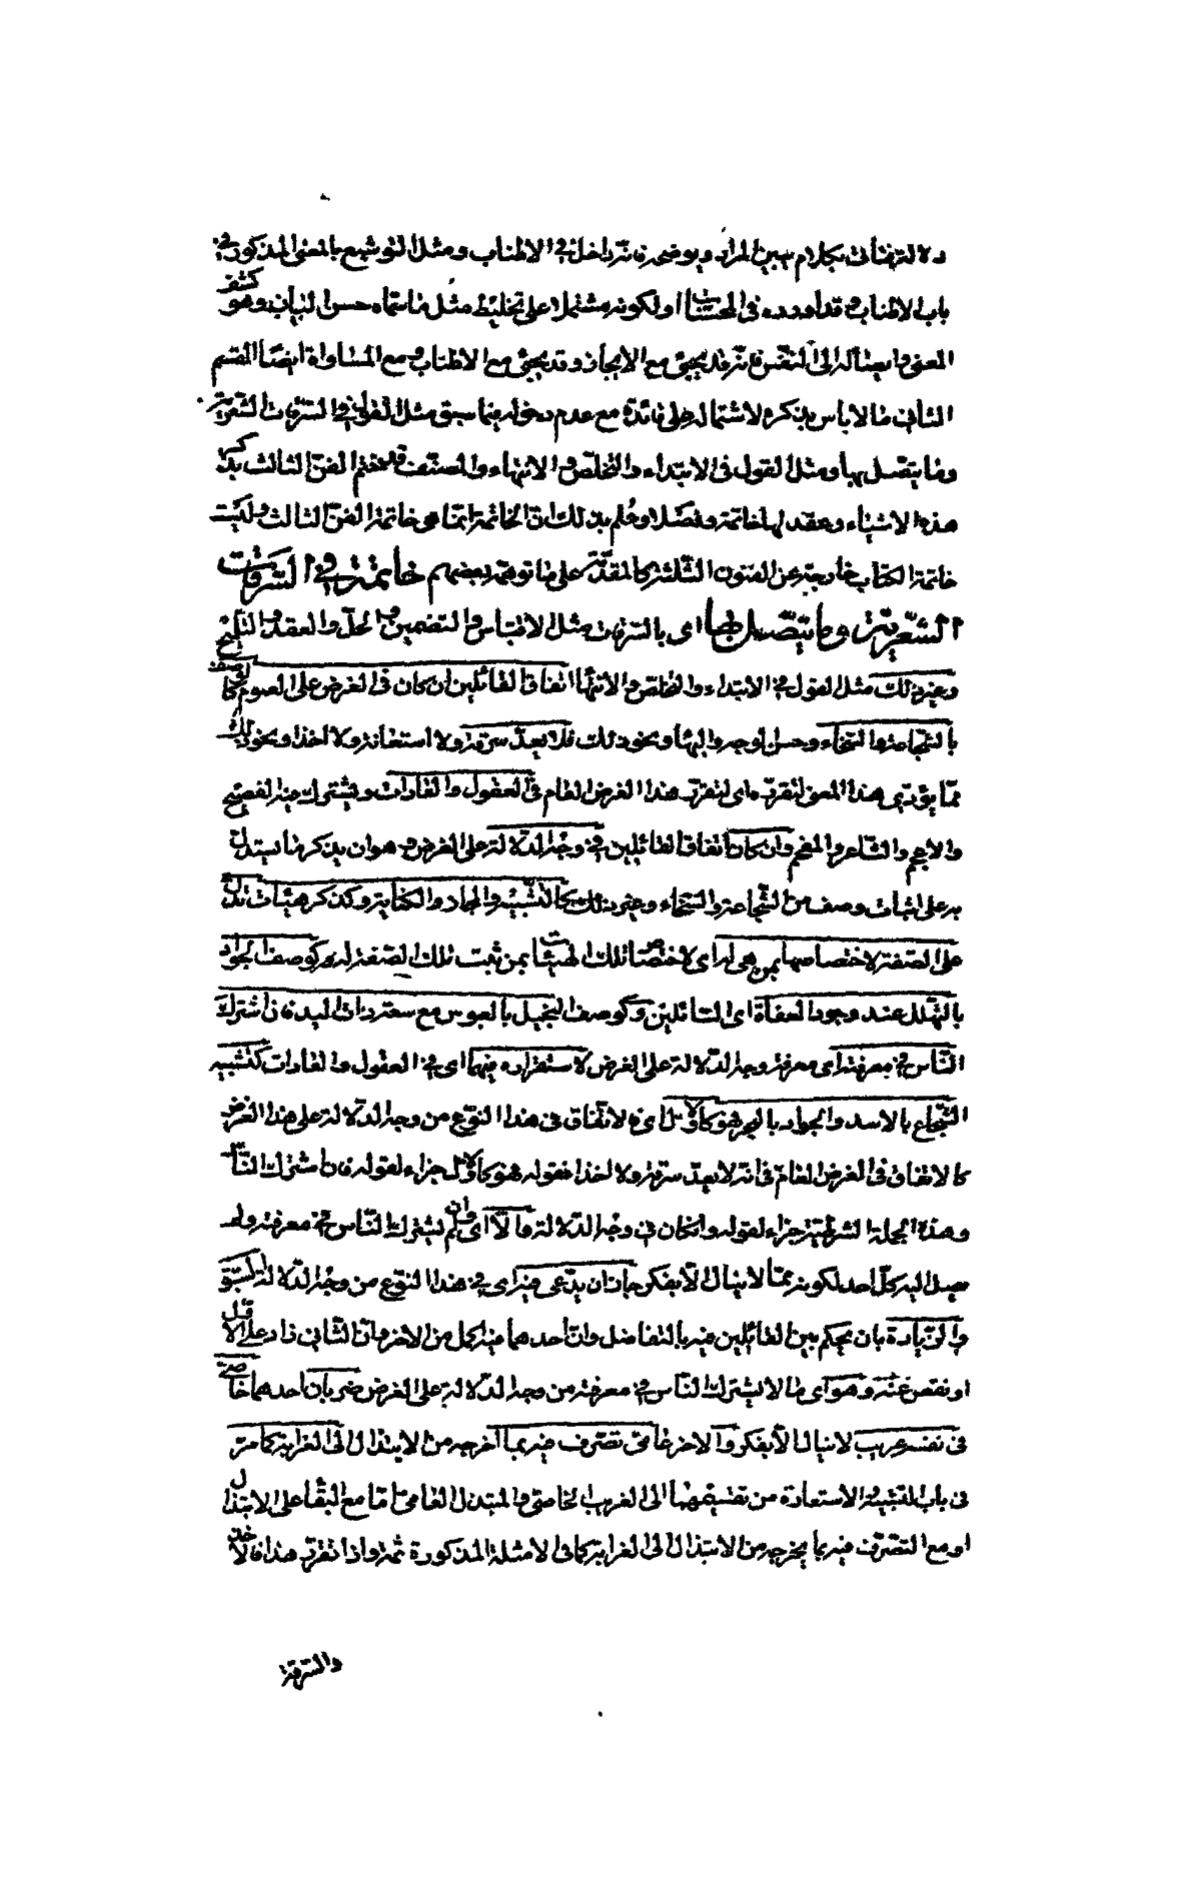 ولا لتفتأتى بكلام يبين المراد ويوضحه فانه داخل في الاطناب ومثل التوشيع بالمعنى المذكور في
باب الاطناب وقد اورده في المحسنات او لكونه مشتملا على تخليط مثل ما سماه حسن البيان وهو كشف
المعنى وايصاله الى النفس فانه قد يجيئ مع الايجاز وقد يجيئ مع الاطناب ومع المساواة ايضا القسم
الثانى ما لا باس بذكره لاشتماله على فائدة مع عدم دخوله فيما سبق مثل القول في السرقات الشعرية
وما يتصل بها ومثل القول في الابتداء والتخلص والانتهاء والمصنف قد ختم الفن الثالث بذكر
هذه الاشياء وعقد لها خاتمة وفصلا وعلم بذلك ان الخاتمة انما هى خاتمة الفن الثالث وليست
خاتمة الكتاب خارجة عن الفنون الثلثة كالمقدمة على ما توهمه بعضهم خاتمة في السرقات
الشعرية وما يتصل بها اى بالسرقات مثل الاقتباس والتضمين والحل والعقد والتلميح
وغير ذلك مثل القول في الابتداء والتخلص والانتهاء اتفاق القائلين ان كان في الغرض على العموم كالوصف
بالشجاعة والسخاء وحسن الوجه والبهاء ونحو ذلك فلا يعد سرقة ولا استعانة ولا اخذا ونحو ذلك
مما يؤدى هذا المعنى لتقرره اى لتقرر هذا الغرض العام في العقول والعادات ويشترك فيه الفصيح
والاعجم والشاعر والمفحم وان كان اتفاق القائلين في وجه الدلالة على الغرض وهو ان يذكر ما يستدل
به على اثبات وصف من الشجاعة والسخاء وغير ذلك كالتشبيه والمجاز والكناية وكذكر هيئات تدل
على الصفة لاختصاصها بمن هى له اى لاختصاص تلك الهيئات بمن ثبت تلك الصفة له كوصف الجواد
بالتهلل عند وجود العفاة اى السائلين وكوصف البخيل بالعبوس مع سعة ذات اليد فان اشترك
الناس في معرفته اى معرفة وجه الدلالة على الغرض لاستقراره فيهما اى في العقول والعادات كتشبيه
الشجاع بالاسد والجواد بالبحر فهو كالاول اى فالاتفاق في هذا النوع من وجه الدلالة على هذا الغرض
كالاتفاق في الغرض العام في انه لا يعد سرقة ولا اخذا فقوله فهو كالاول جزاء لقوله فان اشترك الناس
وهذه الجملة الشرطية جزاء لقوله وان كان في وجه الدلالة والا اى وان لم يشترك الناس في معرفته ولم
يصل اليه كل احد لكونه مما لا ينال الا بفكر جاز ان يدعى فيه اى في هذا النوع من وجه الدلالة السبق
والزيادة بان يحكم بين القائلين فيه بالتفاضل وان احدهما فيه اكمل من الاخر وان الثانى زاد على الاول
او نقص عنه وهو اى ما لا يشترك الناس في معرفته من وجه الدلالة على الغرض ضربان احدهما خاصى
في نفسه غريب لا ينال الا بفكر والاخر عامى تصرف فيه بما اخرجه من الابتذال الى الغرابة كما مر
في باب التشبيه والاستعارة من تقسيمهما الى الغريب الخاصى والمبتذل العامى اما مع البقاء على الابتذال
او مع التصرف فيه بما يخرجه من الابتذال الى الغرابة كما في الامثلة المذكورة ثمة واذا تقرر هذا فالاخذ
والسرقة